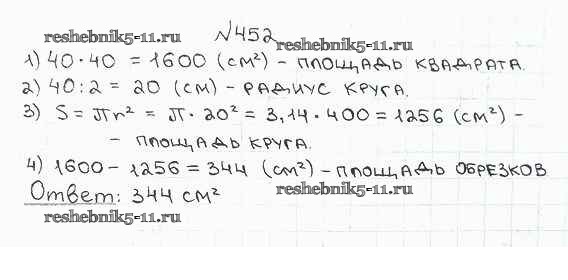 reshebnik5-11.ru
№452
reshebnik5-11.ru
1) 40·40 = 1600 (см²) - площадь квадрата.
2) 40:2 = 20 (см) - радиус круга.
3) S = πr² = π·20² = 3,14·400 = 1256 (см²) -
- площадь круга.
4) 1600 - 1256 = 344 (см²) - площадь обрезков
Ответ: 344 см²
reshebnik5-11.ru
reshebnik5-11.ru